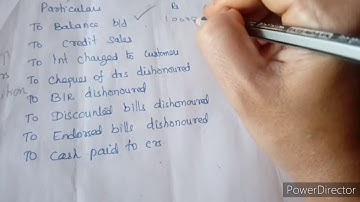 Particulars Rs
To Balance b/d
To Credit sales
To Int charged to customers
To cheques of drs dishonoured
To B/R dishonoured
To Discounted bills dishonoured
To Endorsed bills dishonoured
To Cash paid to crs
PowerDirector